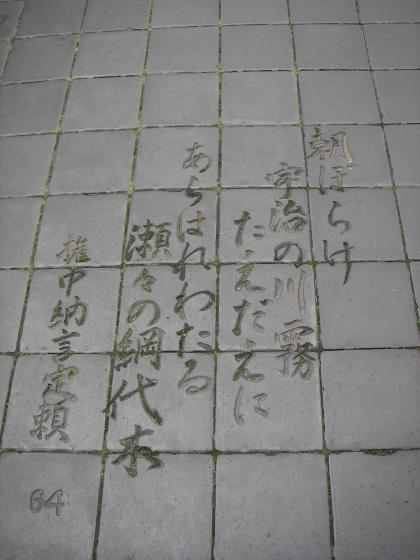 朝ぼらけ
宇治の川霧
たえだえに
あらはれわたる
瀬々の網代木
権中納言定頼
64